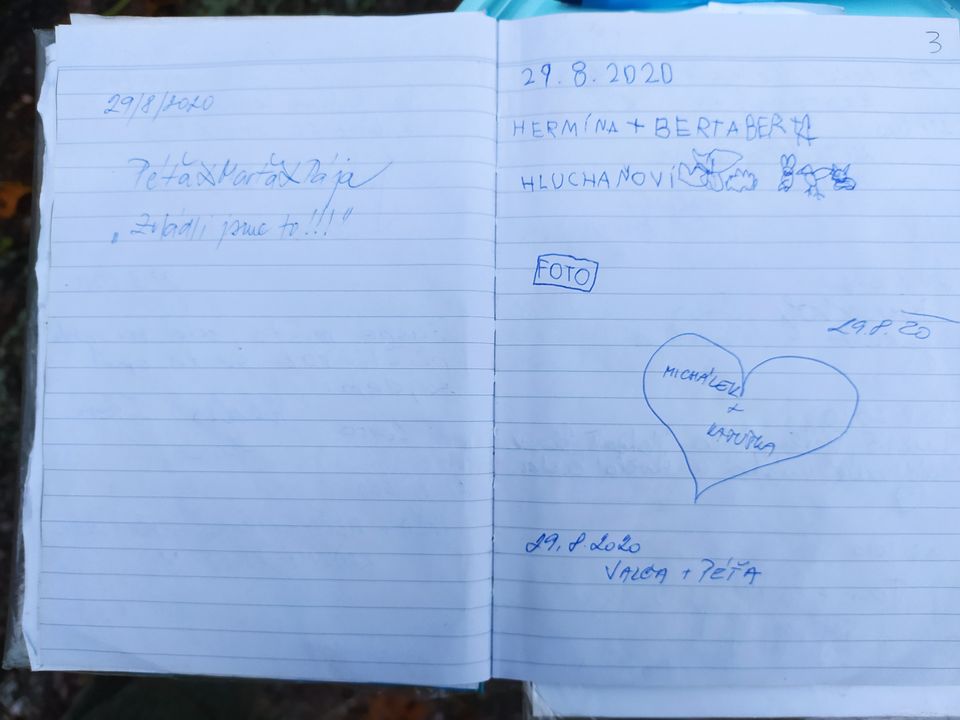 29/8/2020
Péťa & Marťa & Pája
„Zvládli jsme to!!!"
3
29.8.2020
HERMÍNA + BERTABERTA
HLUCHAŇOVI
FOTO
29.8.20
MICHÁLEK
+
KATUŠKA
29.8.2020
+ PÉŤA